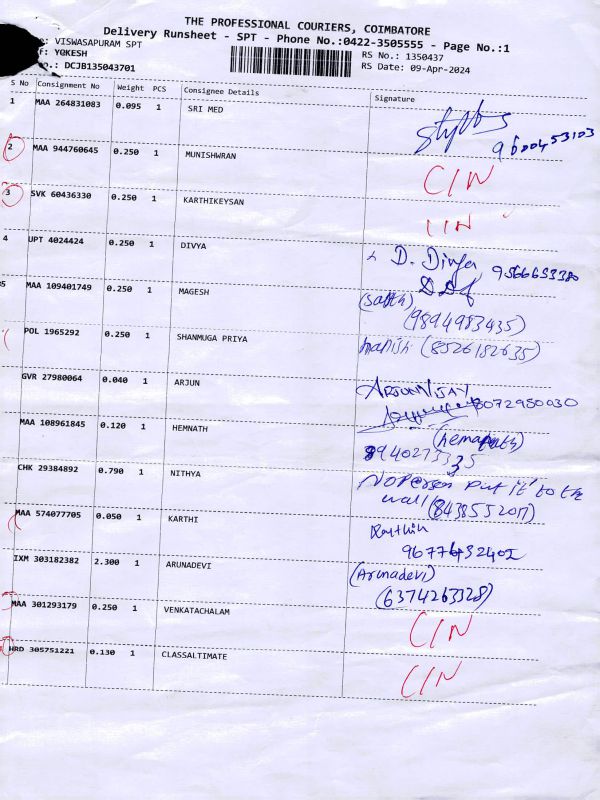 THE PROFESSIONAL COURIERS, COIMBATORE
Delivery Runsheet - SPT - Phone No.:0422-3505555 - Page No.:1
: VISWASAPURAM SPT
RS No.: 1350437
: YOKESH
RS Date: 09-Apr-2024
.: DCJB135043701
S No Consignment No Weight PCS Consignee Details Signature
1 MAA 264831083 0.095 1 SRI MED
9600453103
2 MAA 944760645 0.250 1 MUNISHWRAN CIN
3 SVK 60436330 0.250 1 KARTHIKEYSAN
4 UPT 4024424 0.250 1 DIVYA D. Divya 9566653380
5 MAA 109401749 0.250 1 MAGESH
(9894983435)
POL 1965292 0.250 1 SHANMUGA PRIYA manish (8526182635)
GVR 27980064 0.040 1 ARJUN ARJUNVIJAY
8072950030
MAA 108961845 0.120 1 HEMNATH
CHK 29384892 0.790 1 NITHYA No Person Put it to the
wall (8438552017)
MAA 574077705 0.050 1 KARTHI Karthik
IXM 303182382 2.300 1 ARUNADEVI (Arunadevi)
(6374263328)
MAA 301293179 0.250 1 VENKATACHALAM CIN
HRD 305751221 0.130 1 CLASSALTIMATE CIN